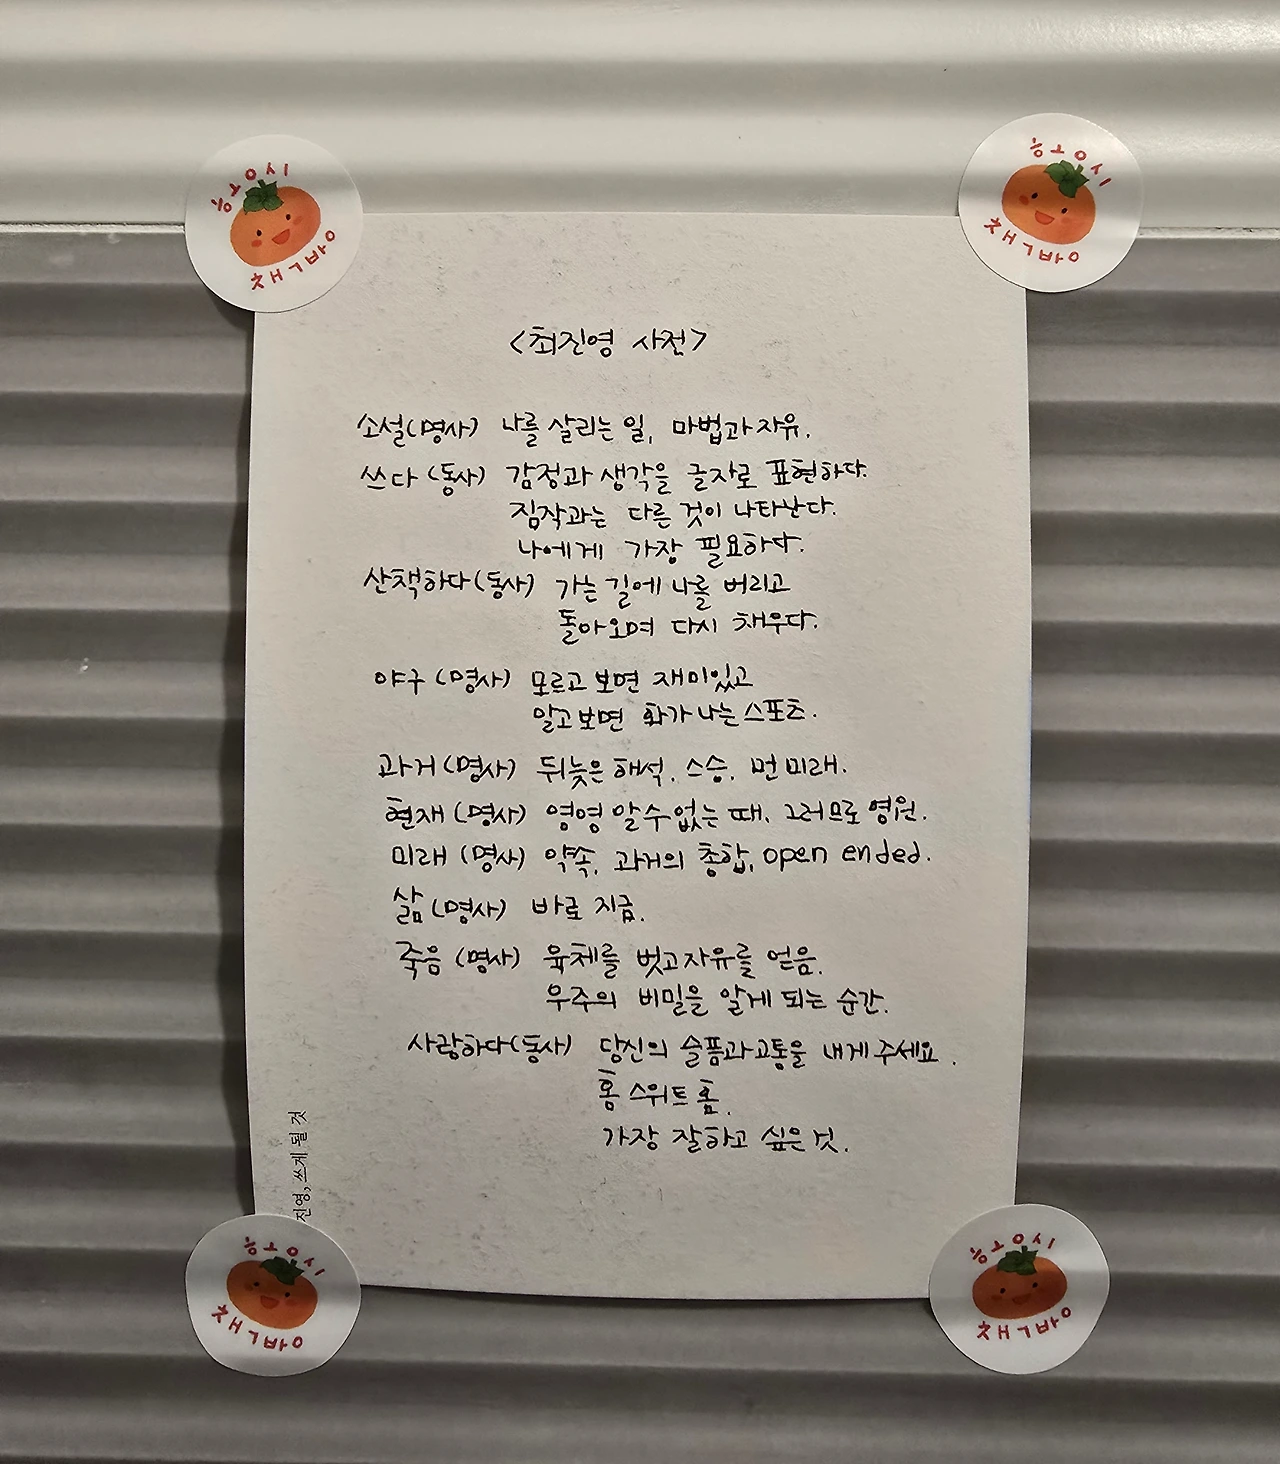 흥오시
책방아
흥오시
책방아
<최진영 사전>
소설(명사) 나를 살리는 일, 마법과 자유.
쓰다 (동사) 감정과 생각을 글자로 표현하다.
짐작과는 다른 것이 나타난다.
나에게 가장 필요하다.
산책하다(동사) 가는 길에 나를 버리고
돌아오며 다시 채우다.
야구 (명사) 모르고 보면 재미있고
알고 보면 화가 나는 스포츠.
과거 (명사) 뒤늦은 해석. 스승. 먼 미래.
현재 (명사) 영영 알 수 없는 때. 그러므로 영원.
미래 (명사) 약속. 과거의 총합. open ended.
삶 (명사) 바로 지금.
죽음 (명사) 육체를 벗고 자유를 얻음.
우주의 비밀을 알게 되는 순간.
사랑하다(동사) 당신의 슬픔과 고통을 내게 주세요.
홈 스위트 홈.
가장 잘하고 싶은 것.
진영, 쓰게 될 것